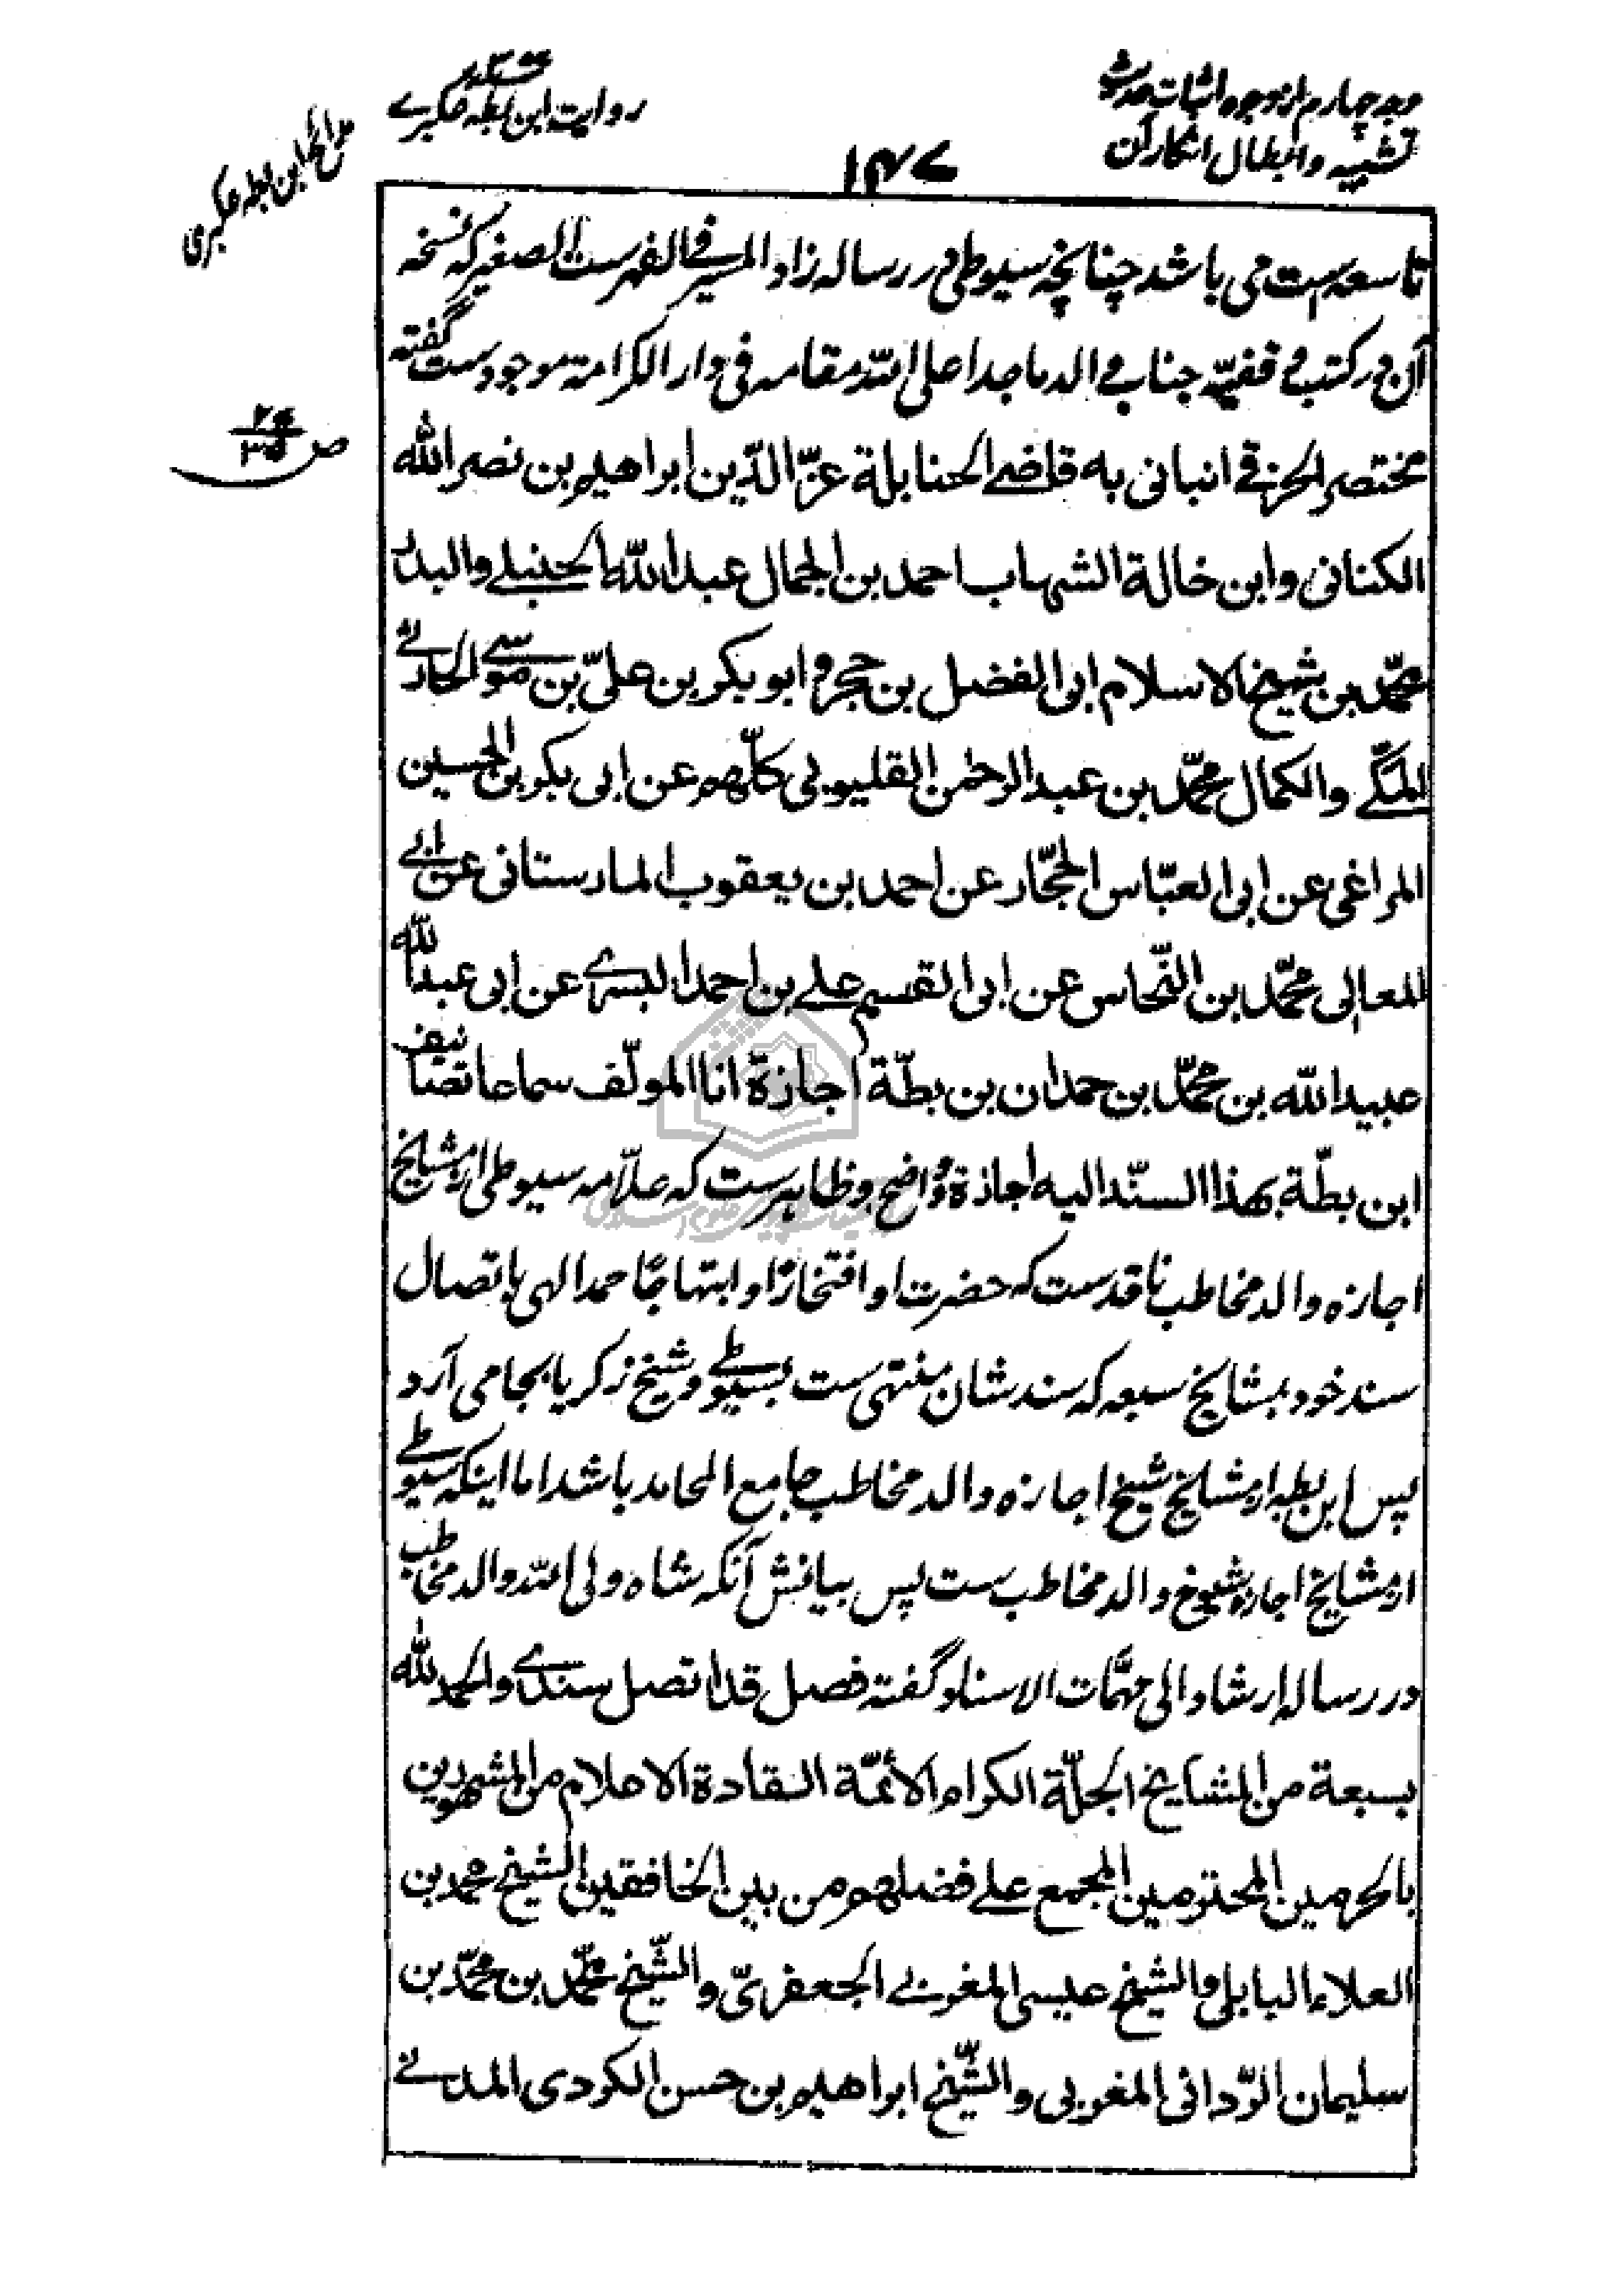 وجه چهارم از وجوه اثبات حدیث
تشبیه و ابطال انکار آن
۱۴۷
روایت ابن بطه عکبری
مدائح ابن بطه عکبری
تاسعه ست می باشد چنانچه سیوطی در رساله زاد المسیر فی الفهرست الصغیر که نسخه
آن در کتب وقفیّه جناب والد ماجد اعلی الله مقامه فی دار الکرامة موجودست گفته
مختصر الخرقی انبانی به قاضی الحنابلة عزّ الدّین ابراهیم بن نصر الله
الکنانی وابن خالة الشهاب احمد بن الجمال عبد الله الحنبلی والبدر
محمّد بن شیخ الاسلام ابی الفضل بن حجر و ابو بکر بن علیّ بن موسی الحارثی
المکّی والکمال محمّد بن عبد الرحمٰن القلیوبی کلّهم عن ابی بکر بن الحسین
المراغی عن ابی العبّاس الحجّار عن احمد بن یعقوب المارستانی عن ابی
المعالی محمّد بن النّحاس عن ابی القسم علی بن احمد البسری عن ابی عبد الله
عبید الله بن محمّد بن حمدان بن بطّة اجازة انا المولّف سماعا تصانیف
ابن بطّة بهذا السنّد الیه اجازة و واضح و ظاهرست که علّامه سیوطی از مشایخ
اجازه والد مخاطب ناقدست که حضرت او افتخارًا و ابتهاجًا حمد الهی باتصال
سند خود بمشایخ سبعه که سند شان منتهی ست بسیوطی و شیخ زکریا بجا می آرد
پس ابن بطه از مشایخ شیخ اجازه والد مخاطب جامع المحامد باشد اما اینکه سیوطی
از مشایخ اجازه شیوخ والد مخاطب ست پس بیانش آنکه شاه ولی الله والد مخاطب
در رساله ارشاد الی مهمّات الاسناد گفته فصل قد اتصل سندی والحمد لله
بسبعة من المشایخ الجلّة الکرام الأئمّة القادة الاعلام من المشهورین
بالحرمین المحترمین المجمع علی فضلهم من بین الخافقین الشیخ محمد بن
العلاء البابلی والشیخ عیسی المغربی الجعفریّ والشّیخ محمّد بن محمّد بن
سلیمان الرّدانی المغربی والشّیخ ابراهیم بن حسن الکردی المدنی